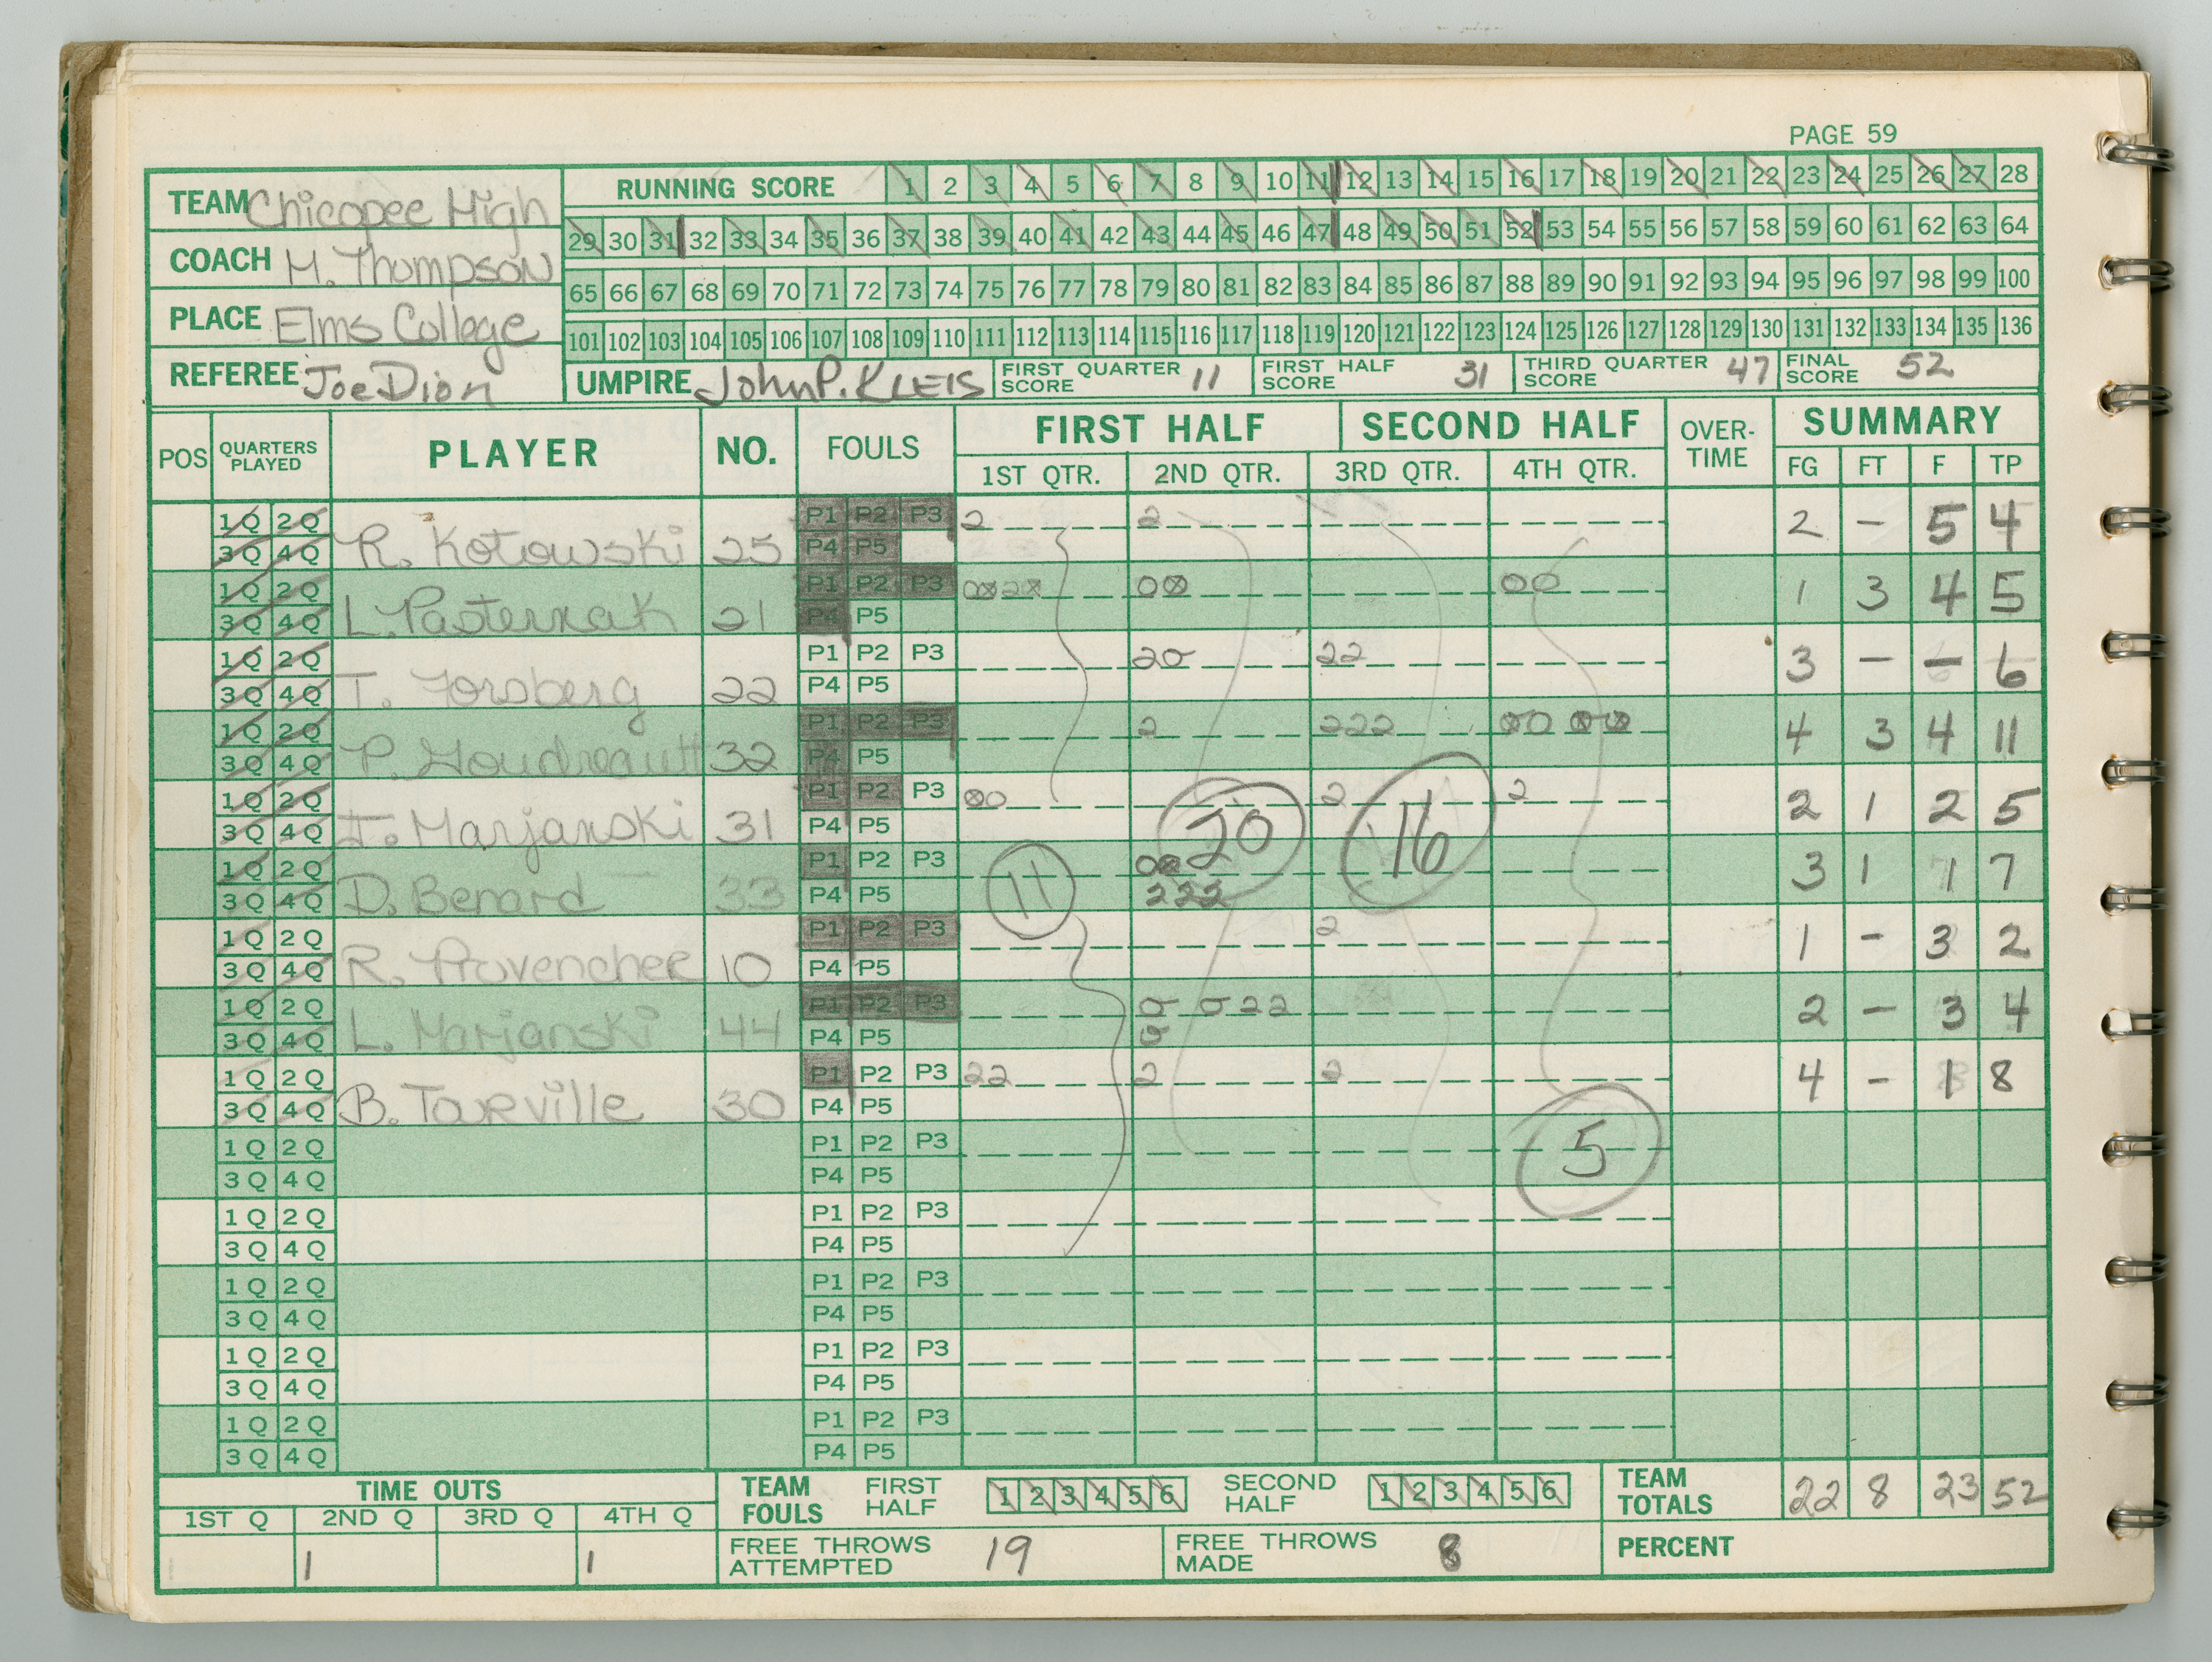 PAGE 59
TEAM Chicopee High
COACH M. Thompson
PLACE Elms College
REFEREE Joe Dion
RUNNING SCORE 1 2 3 4 5 6 7 8 9 10 11 12 13 14 15 16 17 18 19 20 21 22 23 24 25 26 27 28
29 30 31 32 33 34 35 36 37 38 39 40 41 42 43 44 45 46 47 48 49 50 51 52 53 54 55 56 57 58 59 60 61 62 63 64
65 66 67 68 69 70 71 72 73 74 75 76 77 78 79 80 81 82 83 84 85 86 87 88 89 90 91 92 93 94 95 96 97 98 99 100
101 102 103 104 105 106 107 108 109 110 111 112 113 114 115 116 117 118 119 120 121 122 123 124 125 126 127 128 129 130 131 132 133 134 135 136
UMPIRE John P. KLEIS FIRST QUARTER SCORE 11 FIRST HALF SCORE 31 THIRD QUARTER SCORE 47 FINAL SCORE 52
POS QUARTERS PLAYED PLAYER NO. FOULS FIRST HALF SECOND HALF OVER-TIME SUMMARY
1ST QTR. 2ND QTR. 3RD QTR. 4TH QTR. FG FT F TP
1Q 2Q P1 P2 P3 2 2 2 - 5 4
3Q 4Q R. Kotowski 25 P4 P5
1Q 2Q P1 P2 P3 00 2 0 00 00 1 3 4 5
3Q 4Q L. Pasternak 21 P4 P5
1Q 2Q P1 P2 P3 20 22 3 - - 6
3Q 4Q T. Forsberg 22 P4 P5
1Q 2Q P1 P2 P3 2 222 00 00 4 3 4 11
3Q 4Q P. Goudreault 32 P4 P5
1Q 2Q P1 P2 P3 00 2 2 2 1 2 5
3Q 4Q J. Marjanski 31 P4 P5 20 16
1Q 2Q P1 P2 P3 00 3 1 1 7
3Q 4Q D. Benard 33 P4 P5 11 222
1Q 2Q P1 P2 P3 2 1 - 3 2
3Q 4Q R. Provencher 10 P4 P5
1Q 2Q P1 P2 P3 0 0 22 2 - 3 4
3Q 4Q L. Marjanski 44 P4 P5 0
1Q 2Q P1 P2 P3 22 2 2 4 - 1 8
3Q 4Q B. Tarville 30 P4 P5
1Q 2Q P1 P2 P3 5
3Q 4Q P4 P5
1Q 2Q P1 P2 P3
3Q 4Q P4 P5
1Q 2Q P1 P2 P3
3Q 4Q P4 P5
1Q 2Q P1 P2 P3
3Q 4Q P4 P5
1Q 2Q P1 P2 P3
3Q 4Q P4 P5
TIME OUTS TEAM FOULS FIRST HALF 1 2 3 4 5 6 SECOND HALF 1 2 3 4 5 6 TEAM TOTALS 22 8 23 52
1ST Q 2ND Q 3RD Q 4TH Q
1 1 1 FREE THROWS ATTEMPTED 19 FREE THROWS MADE 8 PERCENT